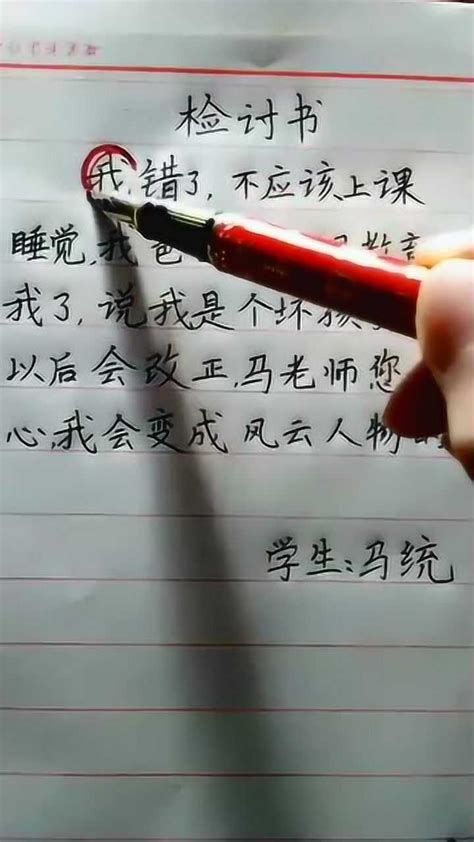 检讨书
我,错了,不应该上课
睡觉,我爸 教育
我了,说我是个坏孩
以后会改正,马老师您
心,我会变成风云人物
学生:马统